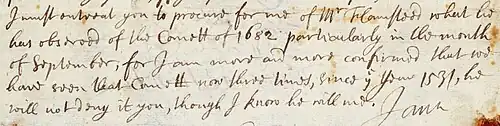 I must entreat you to procure for me of Mr Flamsteed what he
has observed of the Comett of 1682 particularly in the month
of September, for I am more and more confirmed that we
have seen that Comett now three times, since ye Year 1531, he
will not deny it you, though I know he will me. I am